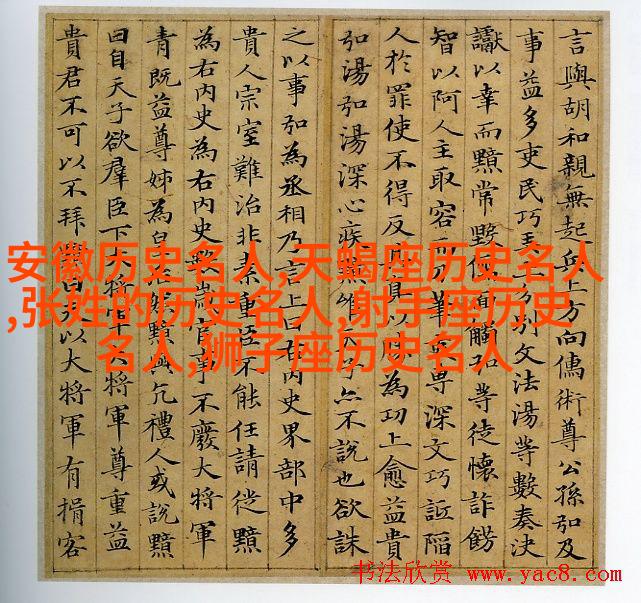 言與胡和親無起兵上方向儒術尊公孫弘及
事益多吏民巧弄上分別文法湯等數奏決
讞以幸而黯常毀儒面觸弘等徒懷詐飾
智以阿人主取容而刀筆吏專深文巧詆陷
人於罪使不得反其真以勝為功上愈益貴
弘湯弘湯深心疾黯唯天子亦不說也欲誅
之以事弘為丞相乃言上曰右內史界部中多
貴人宗室難治非素重臣不能任請徙黯
為右內史為右內史數歲官事不廢大將軍
青既益尊姊為皇后然黯與亢禮人或說黯
曰自天子欲羣臣下大將軍大將軍尊重益
貴君不可以不拜黯曰夫以大將軍有揖客
安徽历史名人,天蝎座历史名人
,张姓的历史名人,射手座历史
名人,狮子座历史名人
书法欣赏 www.yac8.com